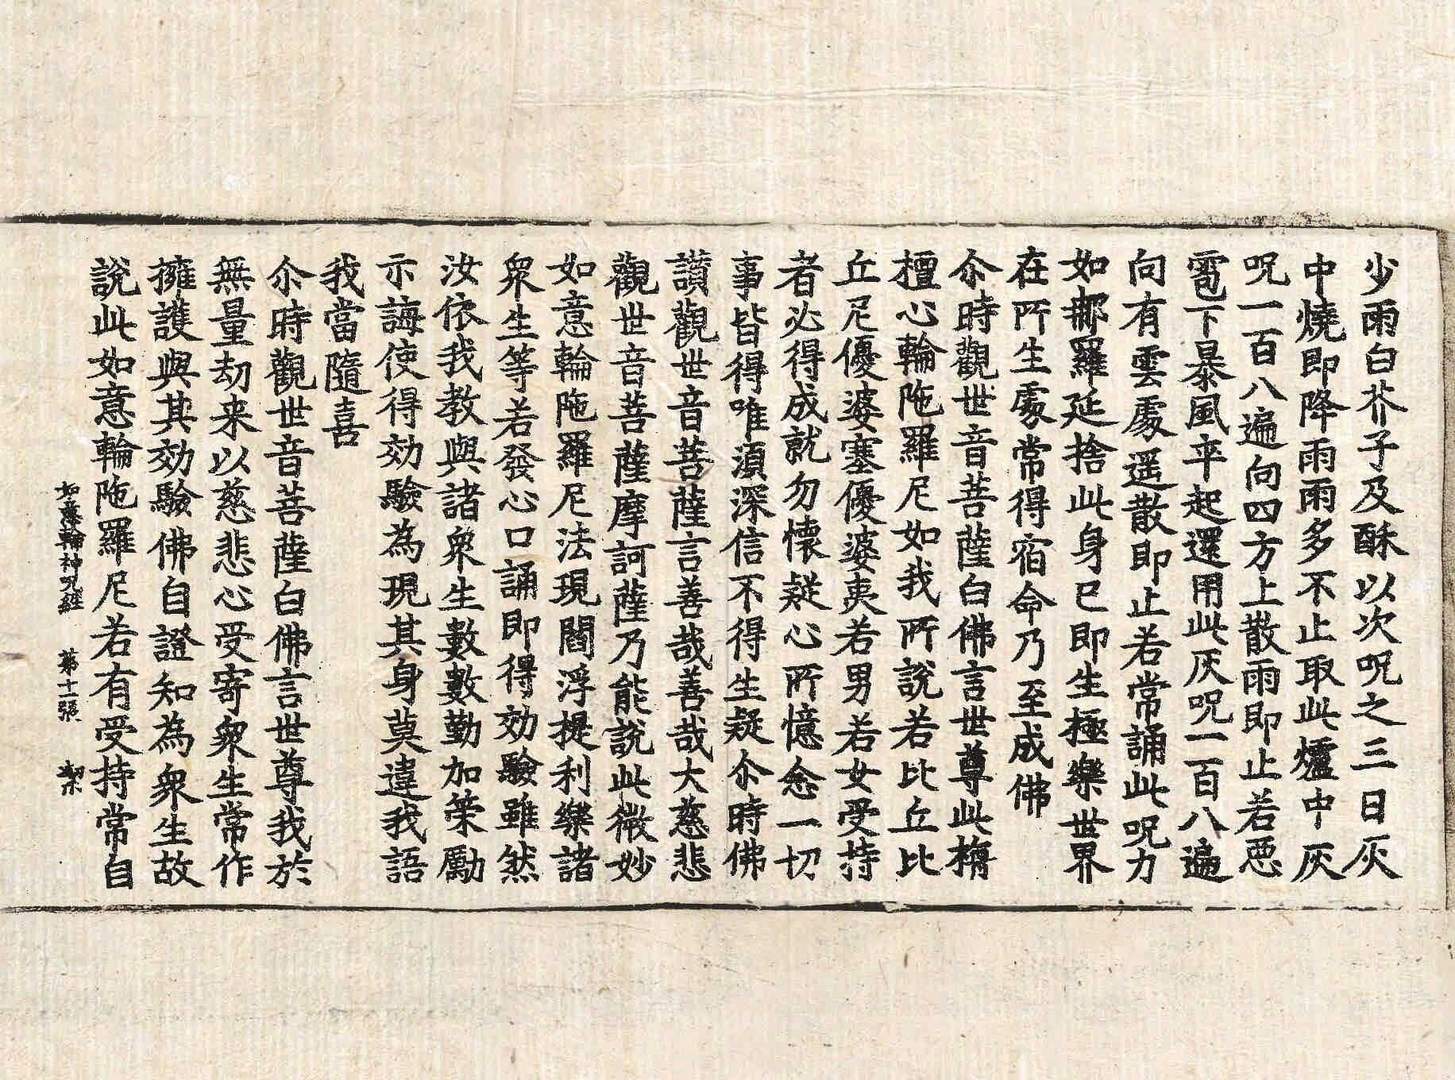 少雨白芥子及酥以次呪之三日灰
中燒即降雨雨多不止取此爐中灰
呪一百八遍向四方上散雨即止若惡
雹下暴風卒起還用此灰呪一百八遍
向有雲處遥散即止若常誦此呪力
如那羅延捨此身已即生極樂世界
在所生處常得宿命乃至成佛
尒時觀世音菩薩白佛言世尊此栴
檀心輪陁羅尼如我所說若比丘比
丘尼優婆塞優婆夷若男若女受持
者必得成就勿懷疑心所憶念一切
事皆得唯須深信不得生疑尒時佛
讃觀世音菩薩言善哉善哉大慈悲
觀世音菩薩摩訶薩乃能說此微妙
如意輪陁羅尼法現閻浮提利樂諸
衆生等若發心口誦即得効驗雖然
汝依我教與諸衆生數數勤加策勵
示誨使得効驗為現其身莫違我語
我當隨喜
尒時觀世音菩薩白佛言世尊我於
無量劫来以慈悲心受寄衆生常作
擁護與其効驗佛自證知為衆生故
說此如意輪陁羅尼若有受持常自
如意輪神呪經 第十一張